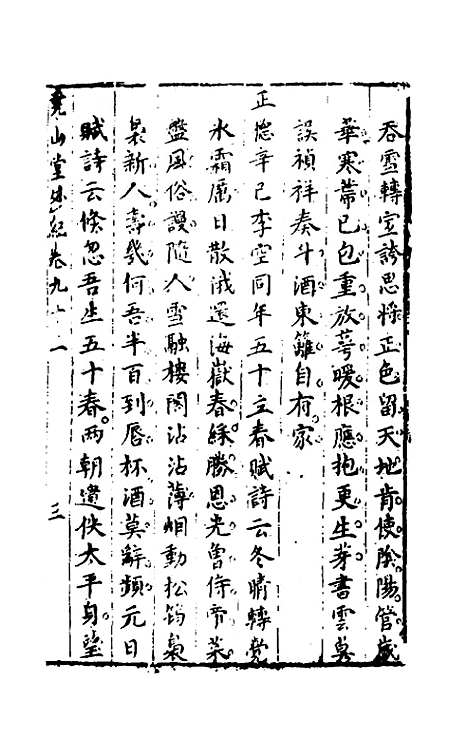 吞雪轉宣誇思將正色留天地肯使陰陽管歲
華寒蒂已包重放萼暖根應抱更生芽書雲莫
誤禎祥奏斗酒東籬自有家
正德辛巳李空同年五十立春賦詩云冬晴轉覺
氷霜厲日散俄還海嶽春綵勝恩光曾侍帝菜
盤風俗謾隨人雪融樓閣沾沾薄烟動松筠裊
裊新人壽幾何吾半百到唇杯酒莫辭頻元日
賦詩云倏忽吾生五十春兩朝遺佚太平身望
堯山堂外紀卷九十一 三